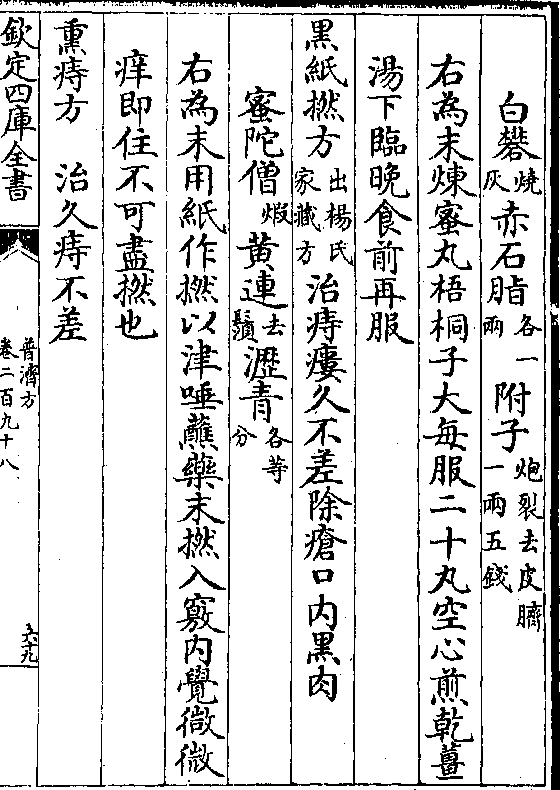 白礬燒灰赤石脂各一兩附子炮裂去皮臍一兩五錢
右為末煉蜜丸梧桐子大每服二十丸空心煎乾薑
湯下臨晚食前再服
黑紙撚方出楊氏家藏方治痔瘻久不差除瘡口内黑肉
蜜陀僧煆黄連去鬚瀝青各等分
右為末用紙作撚以津唾蘸藥末撚入竅内覺微微
痒即住不可盡撚也
熏痔方　治久痔不差
欽定四庫全書
普濟方
卷二百九十八
六十九